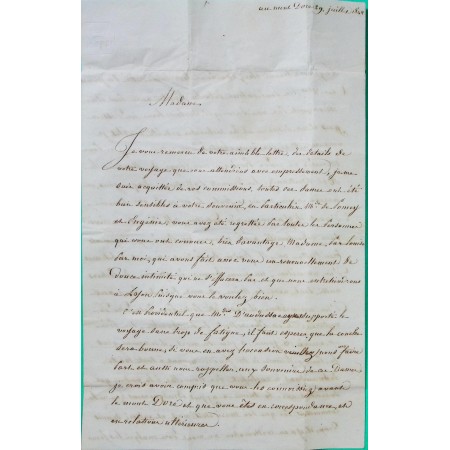 au mont Dore 29 juillet
Madame
Je vous remercie de votre aimable lettre, des details de
votre voyage que nous attendions avec empressement, je me
suis acquittée de vos commissions, toutes ces dames ont été
bien sensibles à votre souvenir, en particulier Mme de
et Eugénie, vous avez été regrettée par toutes les personnes
qui vous ont connues, bien davantage Madame, par
par moi, qui avons fait avec vous un renouvellement de
douce intimité qui ne s'effacera pas et que nous entretiendrons
à Lyon puisque vous le voulez bien.
C'est providentiel que Mme supporte le
voyage sans trop de fatigue, il faut espérer que la
sera bonne, si vous en avez nous faire
part et aussi nous rappeller au souvenir de ces Dames
je crois avoir compris que vous les connaissiez avant
le mont Dore et que vous êtes en correspondance, et
en relations